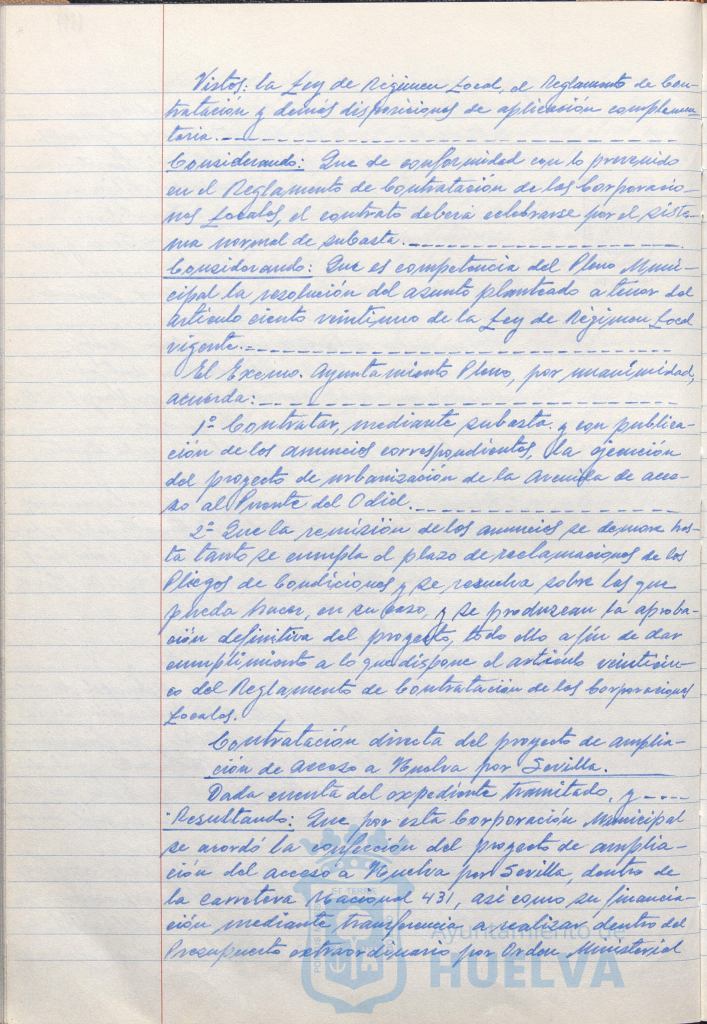 Vistos: la Ley de Régimen Local, el Reglamento de Con-
tratación y demás disposiciones de aplicación complemen-
taria.
Considerando: Que de conformidad con lo prevenido
en el Reglamento de Contratación de las Corporacio-
nes Locales, el contrato deberá celebrarse por el siste-
ma normal de subasta.
Considerando: Que es competencia del Pleno Muni-
cipal la resolución del asunto planteado a tenor del
artículo ciento veintiuno de la Ley de Régimen Local
vigente.
El Excmo. Ayuntamiento Pleno, por unanimidad,
acuerda:
1º Contratar, mediante subasta y con publica-
ción de los anuncios correspondientes, la ejecución
del proyecto de urbanización de la Avenida de acce-
so al Puente del Odiel.
2º Que la remisión de los anuncios se demore has-
ta tanto se cumpla el plazo de reclamaciones de los
Pliegos de Condiciones y se resuelva sobre las que
pueda hacer, en su caso, y se produzcan la aproba-
ción definitiva del proyecto, todo ello a fin de dar
cumplimiento a lo que dispone el artículo veinticin-
co del Reglamento de Contratación de las Corporaciones
Locales.
Contratación directa del proyecto de amplia-
ción de acceso a Huelva por Sevilla.
Dada cuenta del expediente tramitado, y
Resultando: Que por esta Corporación Municipal
se acordó la confección del proyecto de amplia-
ción del acceso a Huelva por Sevilla, dentro de
la carretera Nacional 431, así como su financia-
ción mediante transferencia a realizar dentro del
Presupuesto extraordinario por Orden Ministerial
Ayuntamiento de
HUELVA